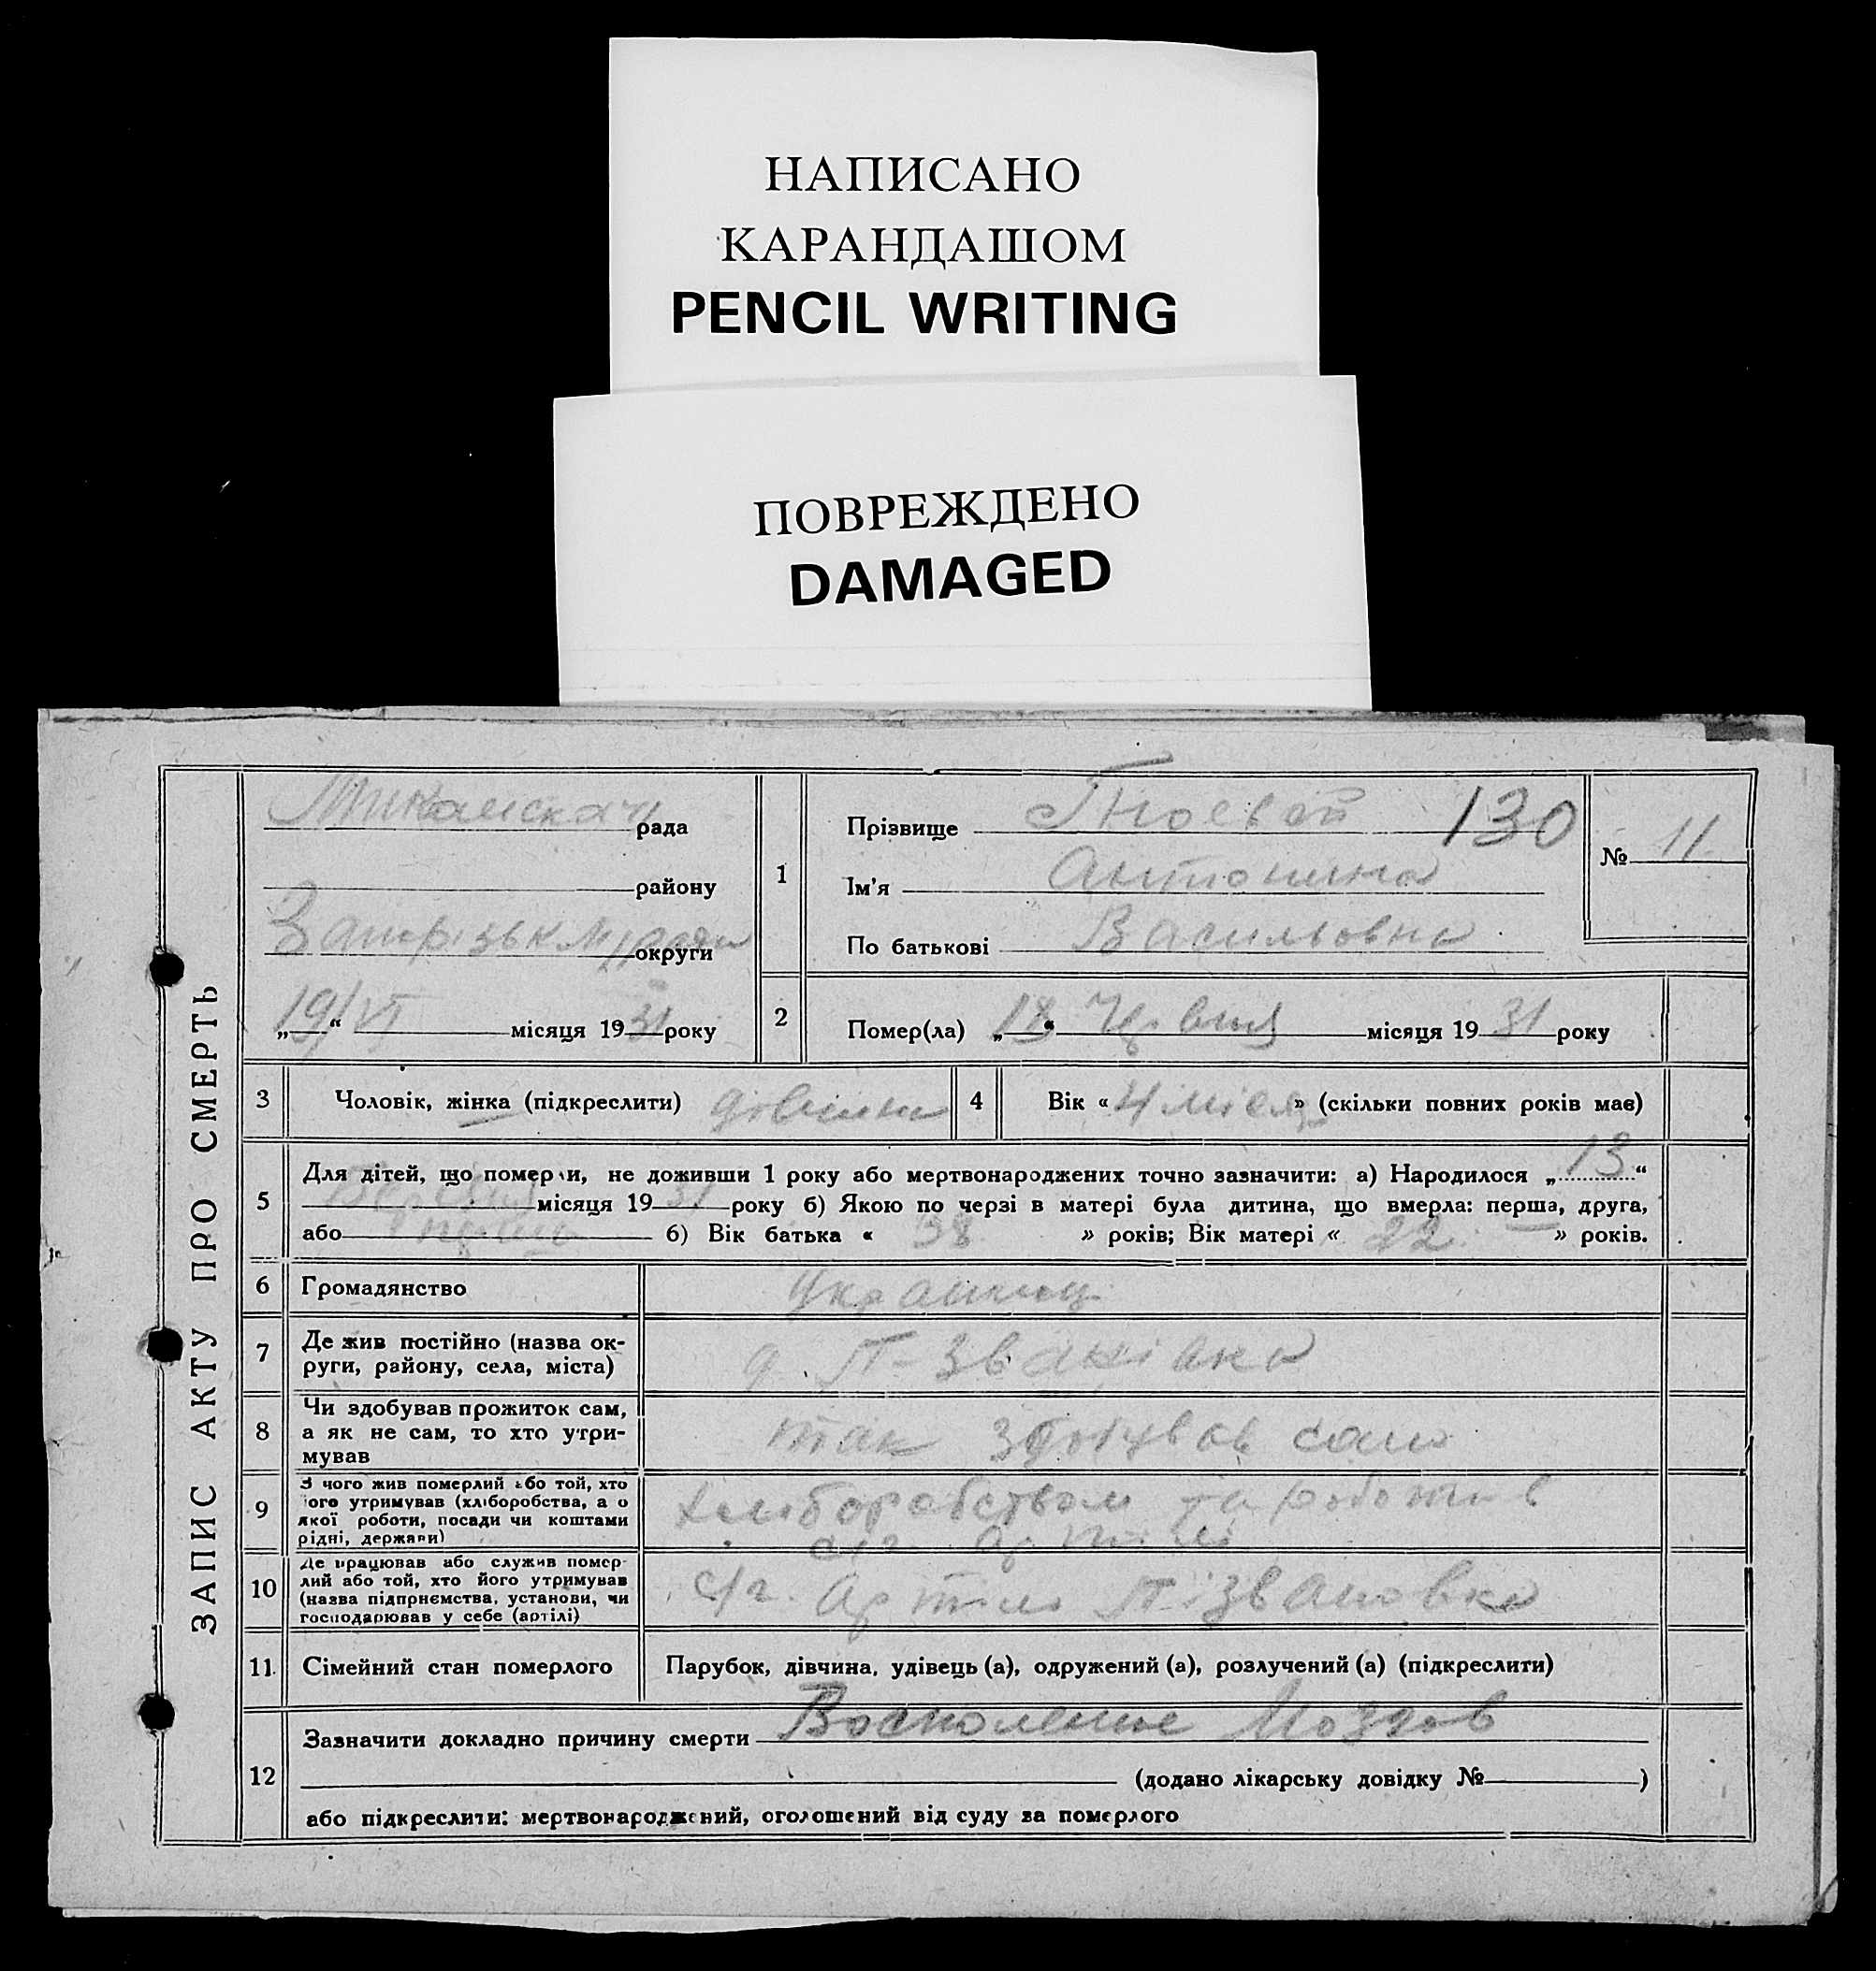 НАПИСАНО
КАРАНДАШОМ
PENCIL WRITING
ПОВРЕЖДЕНО
DAMAGED
ЗАПИС АКТУ ПРО СМЕРТЬ
рада
району
округи
„19/VI“ місяця 1931 року
1
Прізвище 130
Ім'я Антонина
По батькові Васильовна
№ 11
2
Помер(ла) „18“ Червня місяця 1931 року
3 Чоловік, жінка (підкреслити)
4 Вік «4 місяц» (скільки повних років має)
5
Для дітей, що померли, не доживши 1 року або мертвонароджених точно зазначити: а) Народилося „13“
місяця 1931 року б) Якою по черзі в матері була дитина, що вмерла: перша, друга,
або б) Вік батька «38» років; Вік матері «22» років.
6 Громадянство
7 Де жив постійно (назва ок-
руги, району, села, міста)
8
Чи здобував прожиток сам,
а як не сам, то хто утри-
мував
так здобував сам
9
З чого жив померлий або той, хто
його утримував (хліборобства, а о
якої роботи, посади чи коштами
рідні, держави)
Хліборобством та
с/г. артілі
10
Де працював або служив помер-
лий або той, хто його утримував
(назва підприємства, установи, чи
господарював у себе (артілі)
с/г. Артіль
11. Сімейний стан померлого
Парубок, дівчина, удівець (а), одружений (а), розлучений (а) (підкреслити)
12
Зазначити докладно причину смерти Воспаление Мозгов
(додано лікарську довідку № )
або підкреслити: мертвонароджений, оголошений від суду за померлого